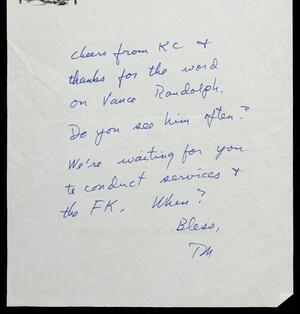 Cheers from KC &
thanks for the word
on Vance Randolph.
Do you see him often?
We're waiting for you
to conduct services &
the FK. When?
Bless,
TM